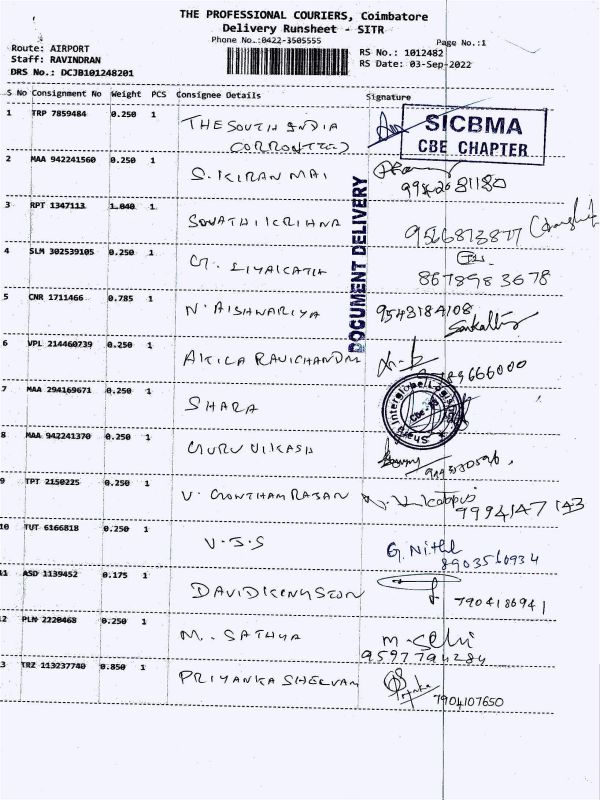 THE PROFESSIONAL COURIERS, Coimbatore
Delivery Runsheet - SITR
Phone No.:0422-3505555
Page No.:1
Route: AIRPORT
RS No.: 1012482
Staff: RAVINDRAN
RS Date: 03-Sep-2022
DRS No.: DCJB101248201
S No Consignment No Weight PCS Consignee Details Signature
1 TRP 7859484 0.250 1 THE SOUTH INDIA
SICBMA
CBE CHAPTER
2 MAA 942241560 0.250 1 S. KIRAN MAI
DOCUMENT DELIVERY
3 RPT 1347113 1.040 1 SOWATHI KRIHNA
4 SLM 302539105 0.250 1 G. LIYALCATH
8678983678
5 CNR 1711466 0.785 1 N. AISHWARIYA 9543184108
6 VPL 214460739 0.250 1 AKILA RAVICHANDM
7 MAA 294169671 0.250 1 SHARA
8 MAA 942241370 0.250 1 GURU VIKASH
9 TPT 2150225 0.250 1 V. GOWTHAM RASAN
9994147143
10 TUT 6166818 0.250 1 V.S.S G. Nithl
8903560934
11 ASD 1139452 0.175 1 DAVID KENGSTON
7904186941
12 PLN 2220468 0.250 1 M. SATHYA M. Selvi
9597794284
13 TRZ 113237740 0.850 1 PRIYANKA SHELVAM
7904107650